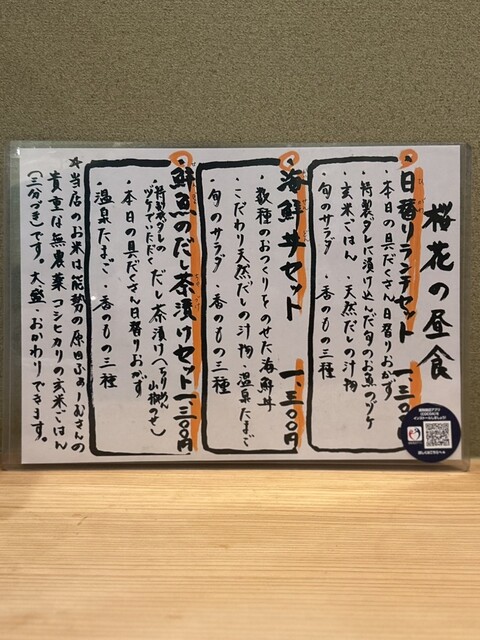 桜花の昼食
日替りランチセット 一、三〇〇円
・本日の具だくさん日替りおかず
・特製タレで漬け込んだ旬のお魚のヅケ
・玄米ごはん ・天然だしの汁物
・旬のサラダ ・香のもの三種
海鮮丼セット 一、三〇〇円
・数種のおつくりをのせた海鮮丼
・こだわり天然だしの汁物 ・温泉たまご
・旬のサラダ ・香のもの三種
鮮魚のだし茶漬けセット 一、三〇〇円
・特製ダレの
ヅケでいただく だし茶漬け(ちりめん山椒のせ)
・本日の具だくさん日替りおかず
・温泉たまご ・香のもの三種
☆当店のお米は能勢の原田ふぁーむさんの
貴重な無農薬コシヒカリの玄米ごはん
(三分づき)です。大盛・おかわりできます。